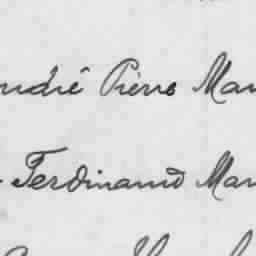 André Pierre Mar
Ferdinand Mar